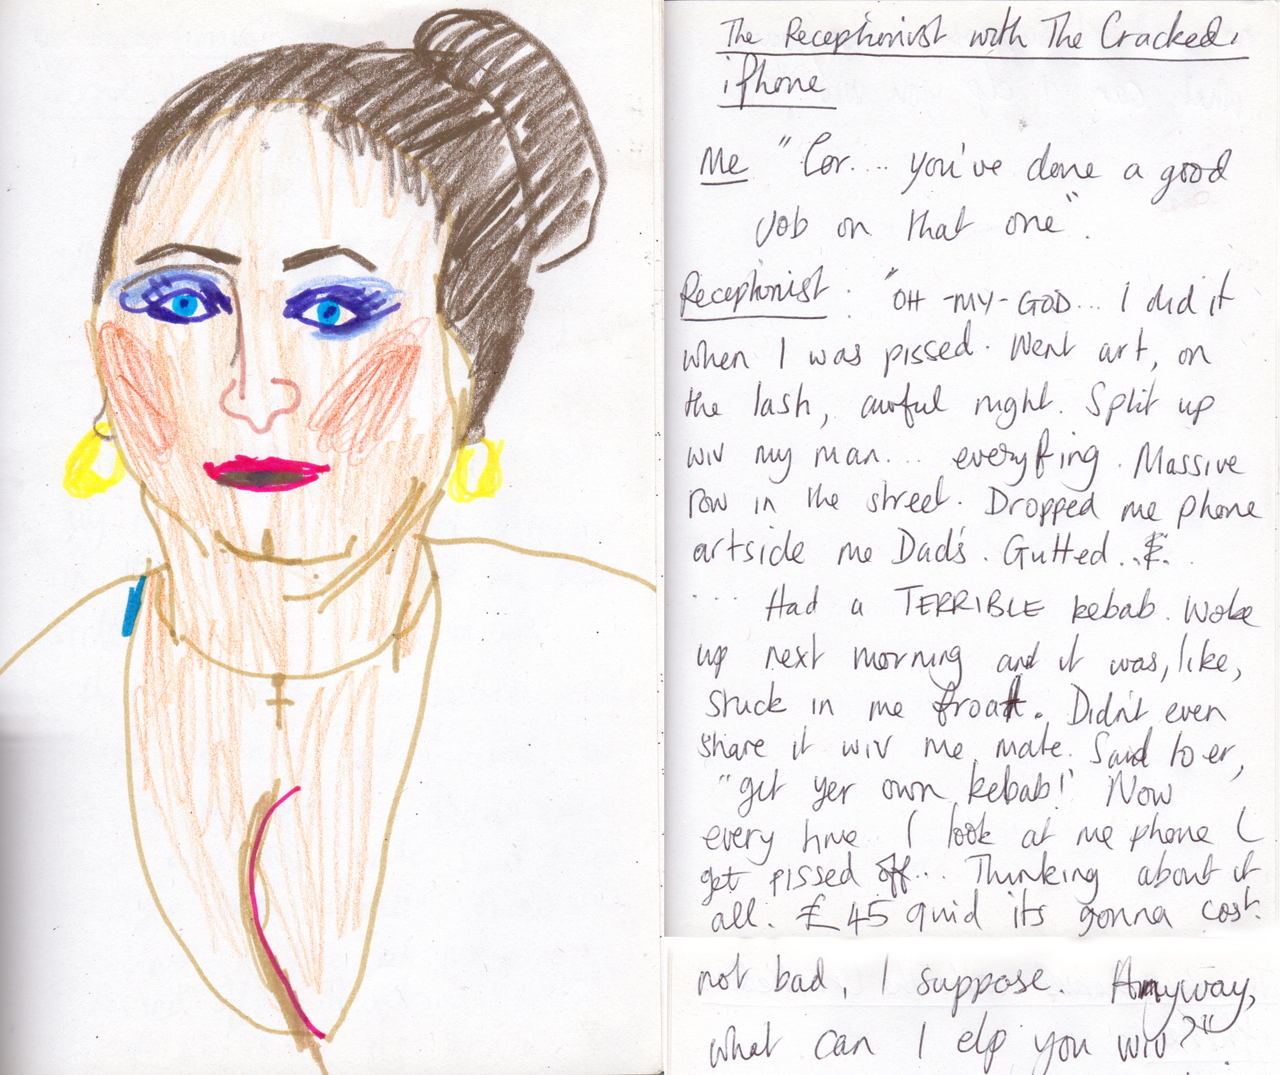 The Receptionist with The Cracked
iPhone
Me "Cor.... you've done a good
job on that one".
Receptionist. "OH-MY-GOD... I did it
when I was pissed. Went art, on
the lash, awful night. Split up
wiv my man... everyfing. Massive
row in the street. Dropped me phone
artside me Dad's. Gutted...
.... Had a TERRIBLE kebab. Woke
up next morning and it was, like,
stuck in me froat. Didn't even
share it wiv me mate. Said to er,
"get yer own kebab!" Now
every time I look at me phone I
get pissed off... Thinking about it
all. £45 quid its gonna cost.
not bad, I suppose. Anyway,
what can I elp you wiv?"